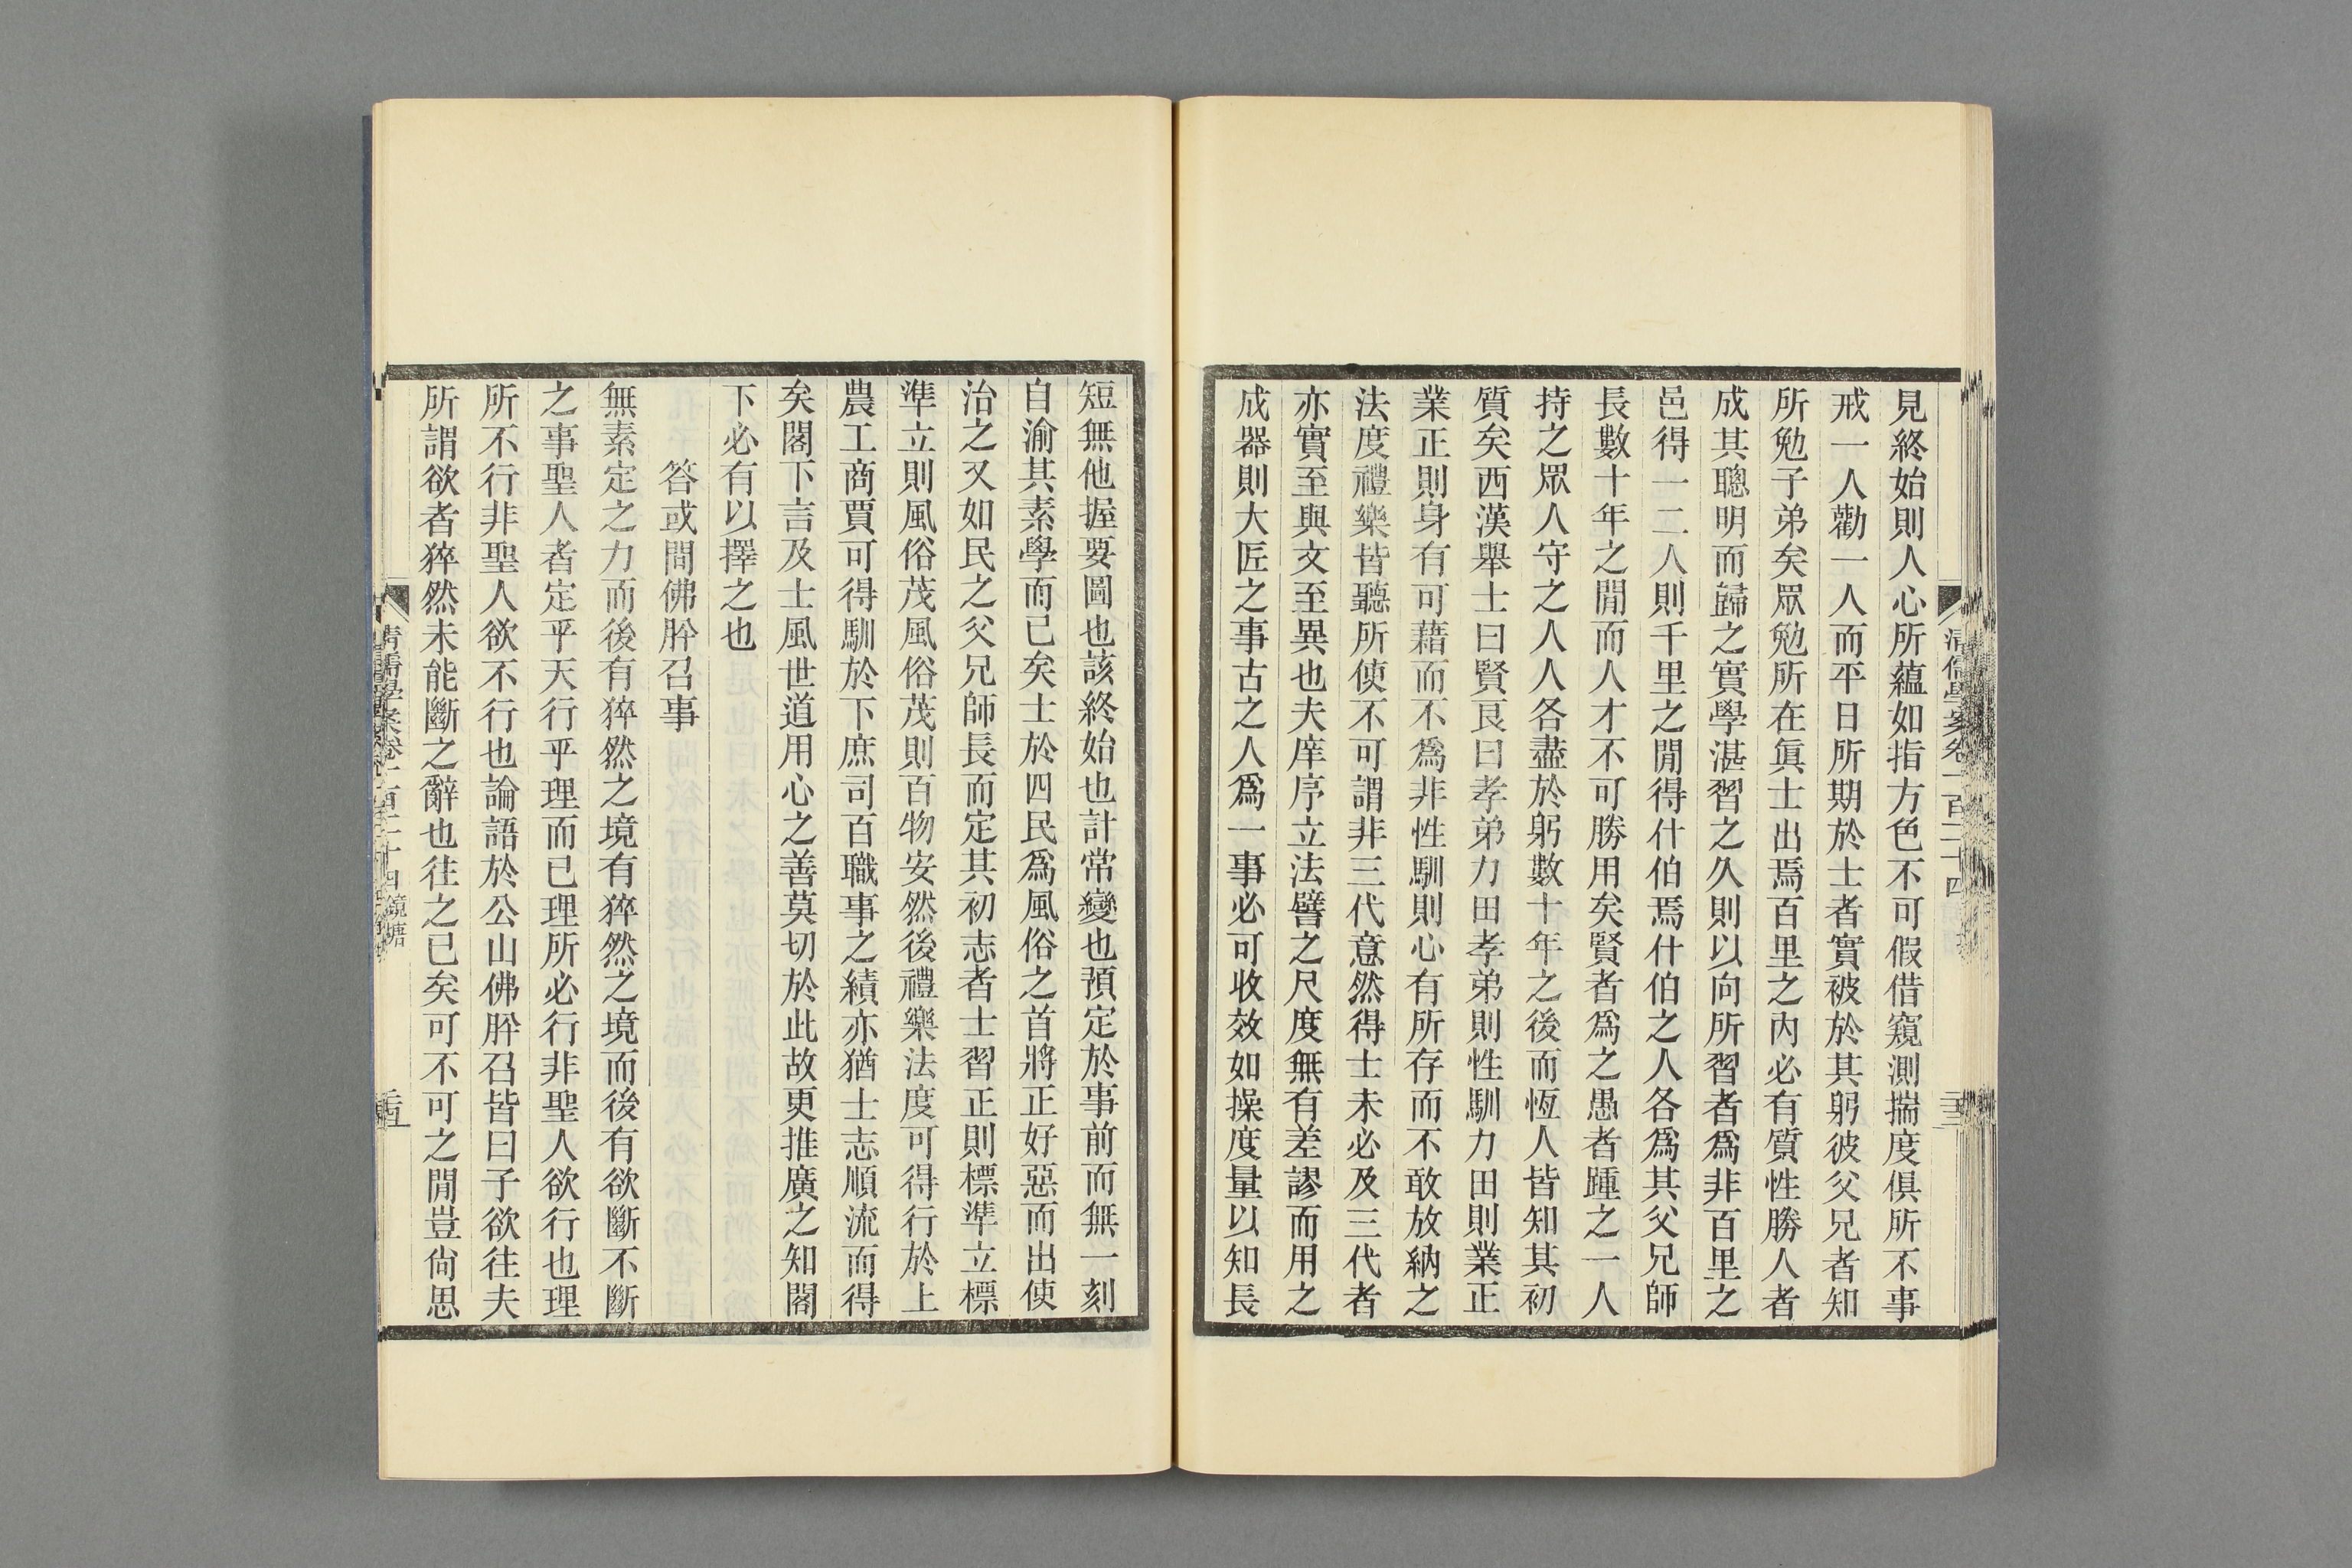 見終始則人心所蘊如指方色不可假借窺測揣度俱所不事
戒一人勸一人而平日所期於士者實被於其躬彼父兄者知
所勉子弟矣眾勉所在眞士出焉百里之內必有質性勝人者
成其聰明而歸之實學湛習之久則以向所習者爲非百里之
邑得一二人則千里之閒得什伯焉什伯之人各爲其父兄師
長數十年之閒而人才不可勝用矣賢者爲之愚者踵之一人
持之眾人守之人人各盡於躬數十年之後而恆人皆知其初
質矣西漢舉士曰賢良曰孝弟力田孝弟則性馴力田則業正
業正則身有可藉而不爲非性馴則心有所存而不敢放納之
法度禮樂皆聽所使不可謂非三代意然得士未必及三代者
亦實至與文至異也夫庠序立法譬之尺度無有差謬而用之
成器則大匠之事古之人爲一事必可收效如操度量以知長
清儒學案卷一百二十四
短無他握要圖也該終始也計常變也預定於事前而無一刻
自渝其素學而已矣士於四民爲風俗之首將正好惡而出使
治之又如民之父兄師長而定其初志者士習正則標準立標
準立則風俗茂風俗茂則百物安然後禮樂法度可得行於上
農工商賈可得馴於下庶司百職事之績亦猶士志順流而得
矣閣下言及士風世道用心之善莫切於此故更推廣之知閣
下必有以擇之也
答或問佛肸召事
無素定之力而後有猝然之境有猝然之境而後有欲斷不斷
之事聖人者定乎天行乎理而已理所必行非聖人欲行也理
所不行非聖人欲不行也論語於公山佛肸召皆曰子欲往夫
所謂欲者猝然未能斷之辭也往之已矣可不可之閒豈尙思
清儒學案卷一百二十四 鏡塘